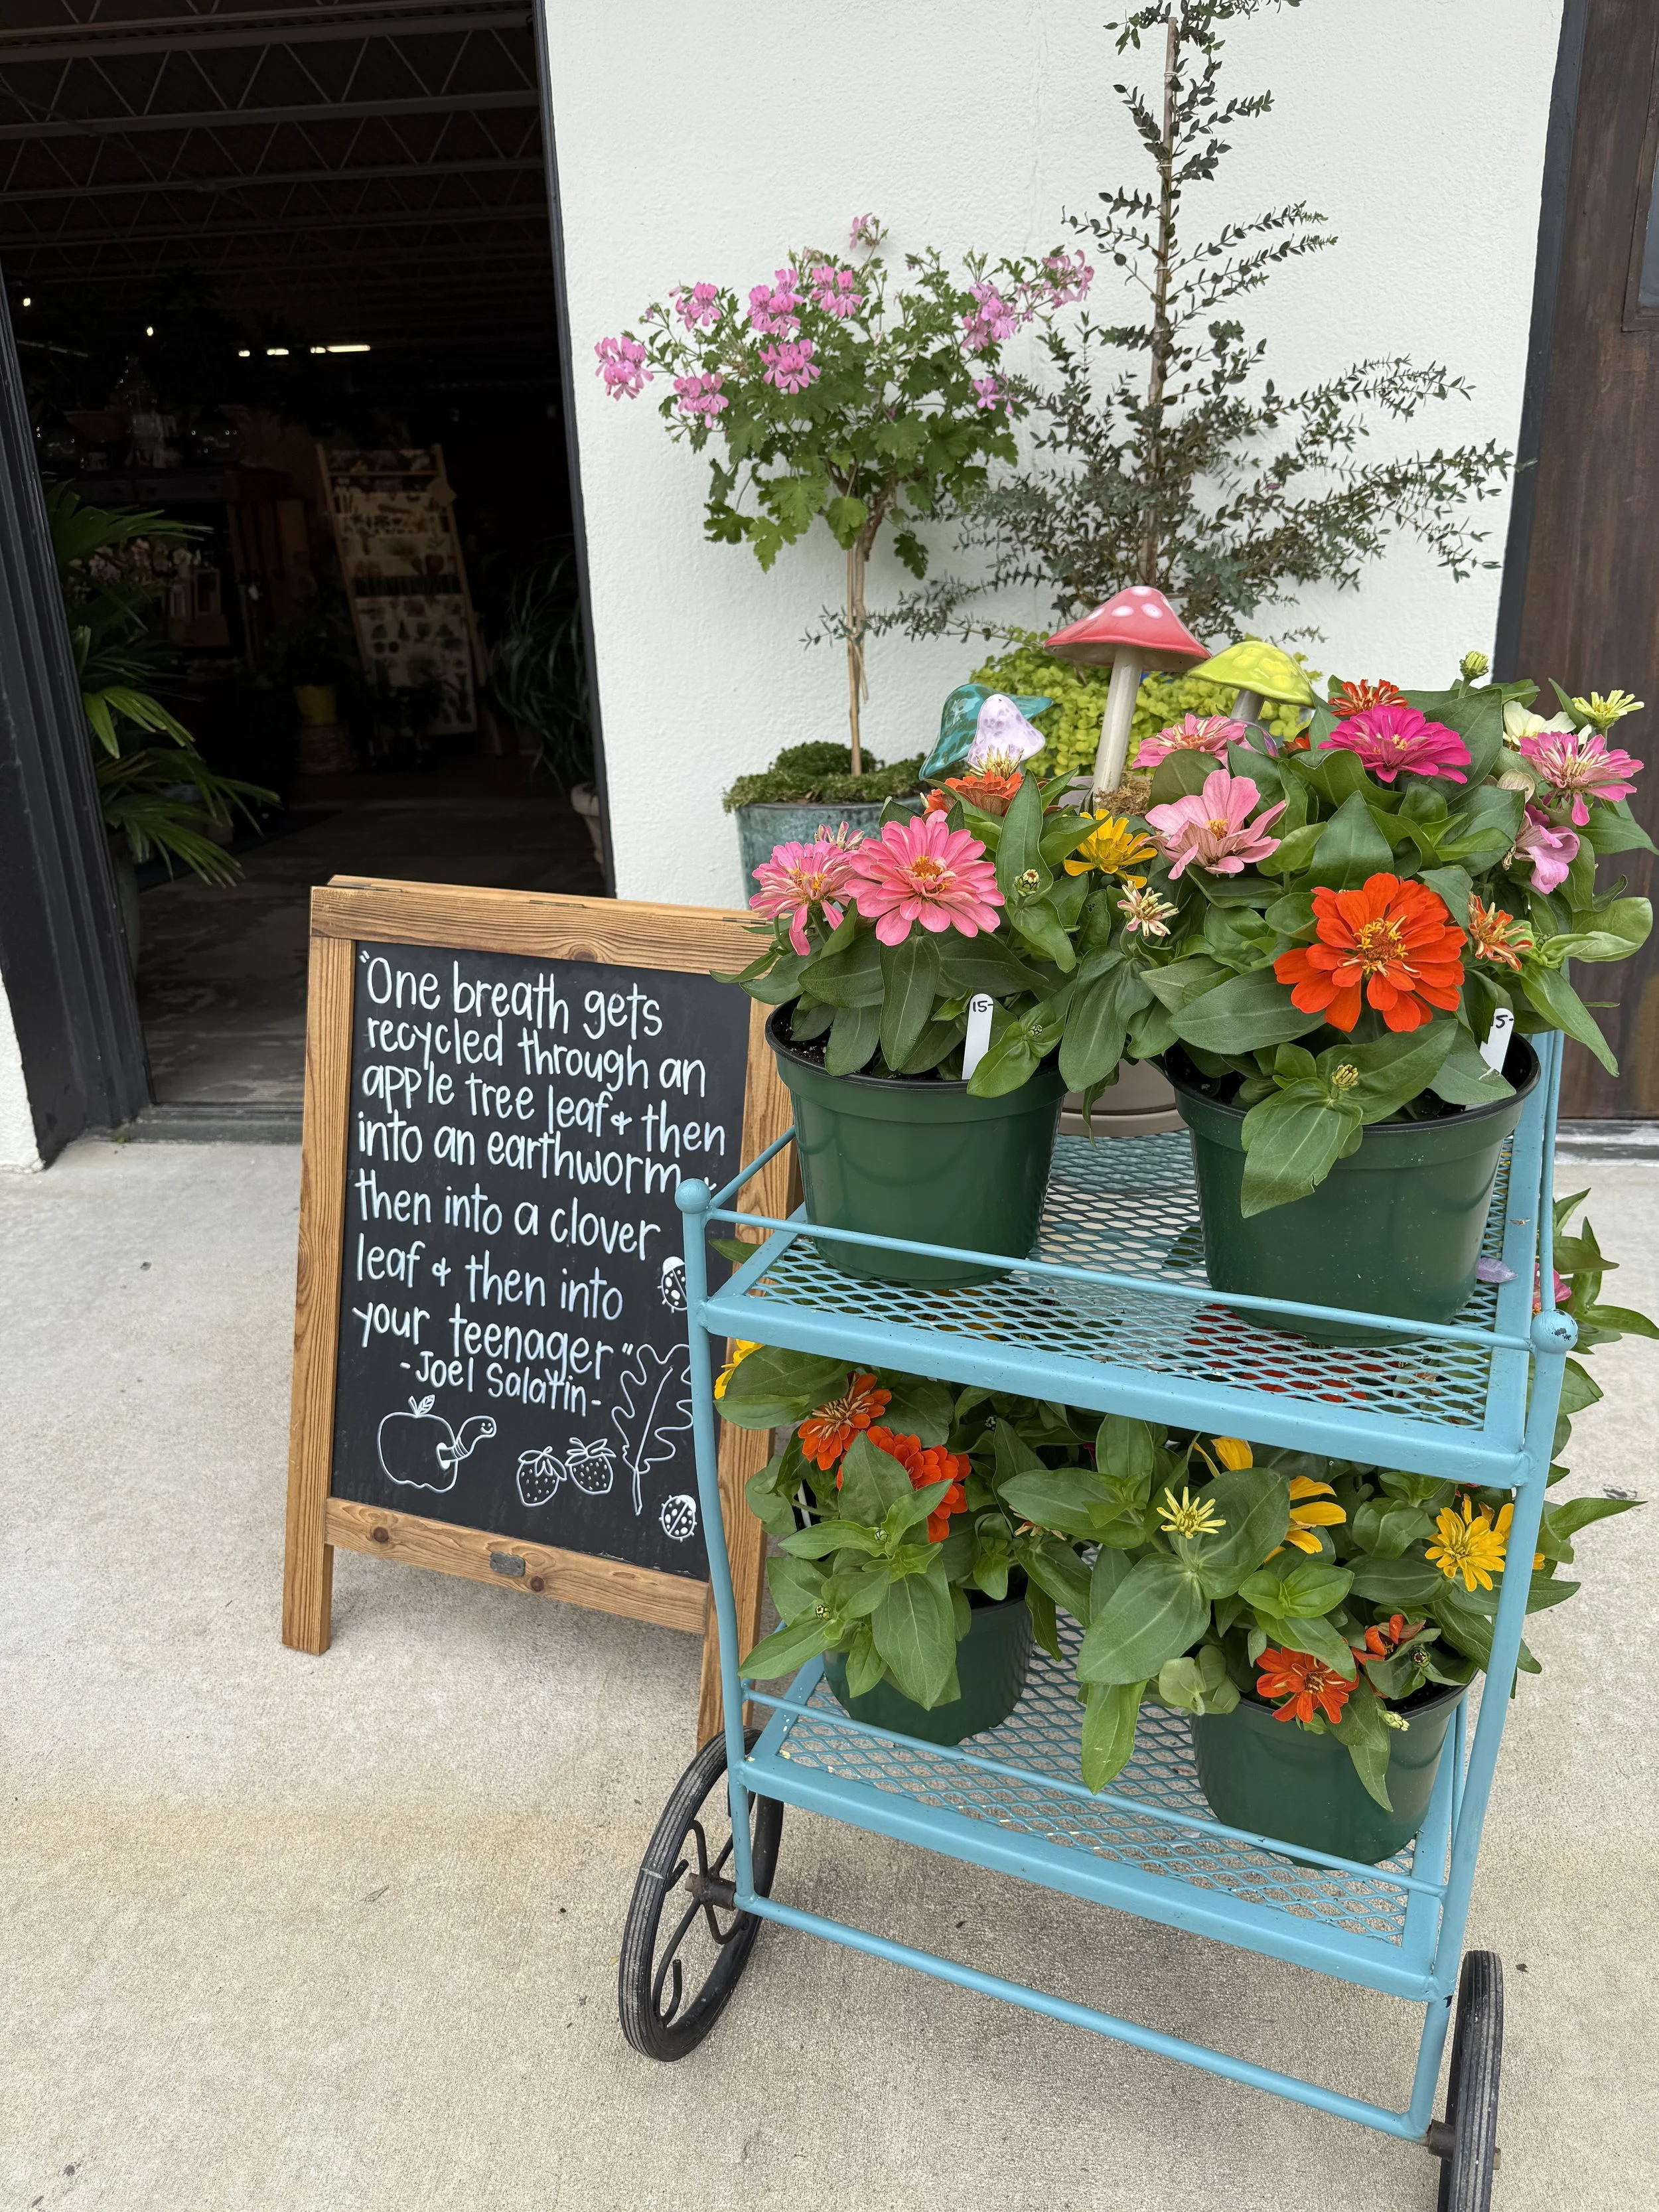 "One breath gets
recycled through an
apple tree leaf & then
into an earthworm &
then into a clover
leaf & then into
your teenager"
-Joel Salatin-
15-
5-